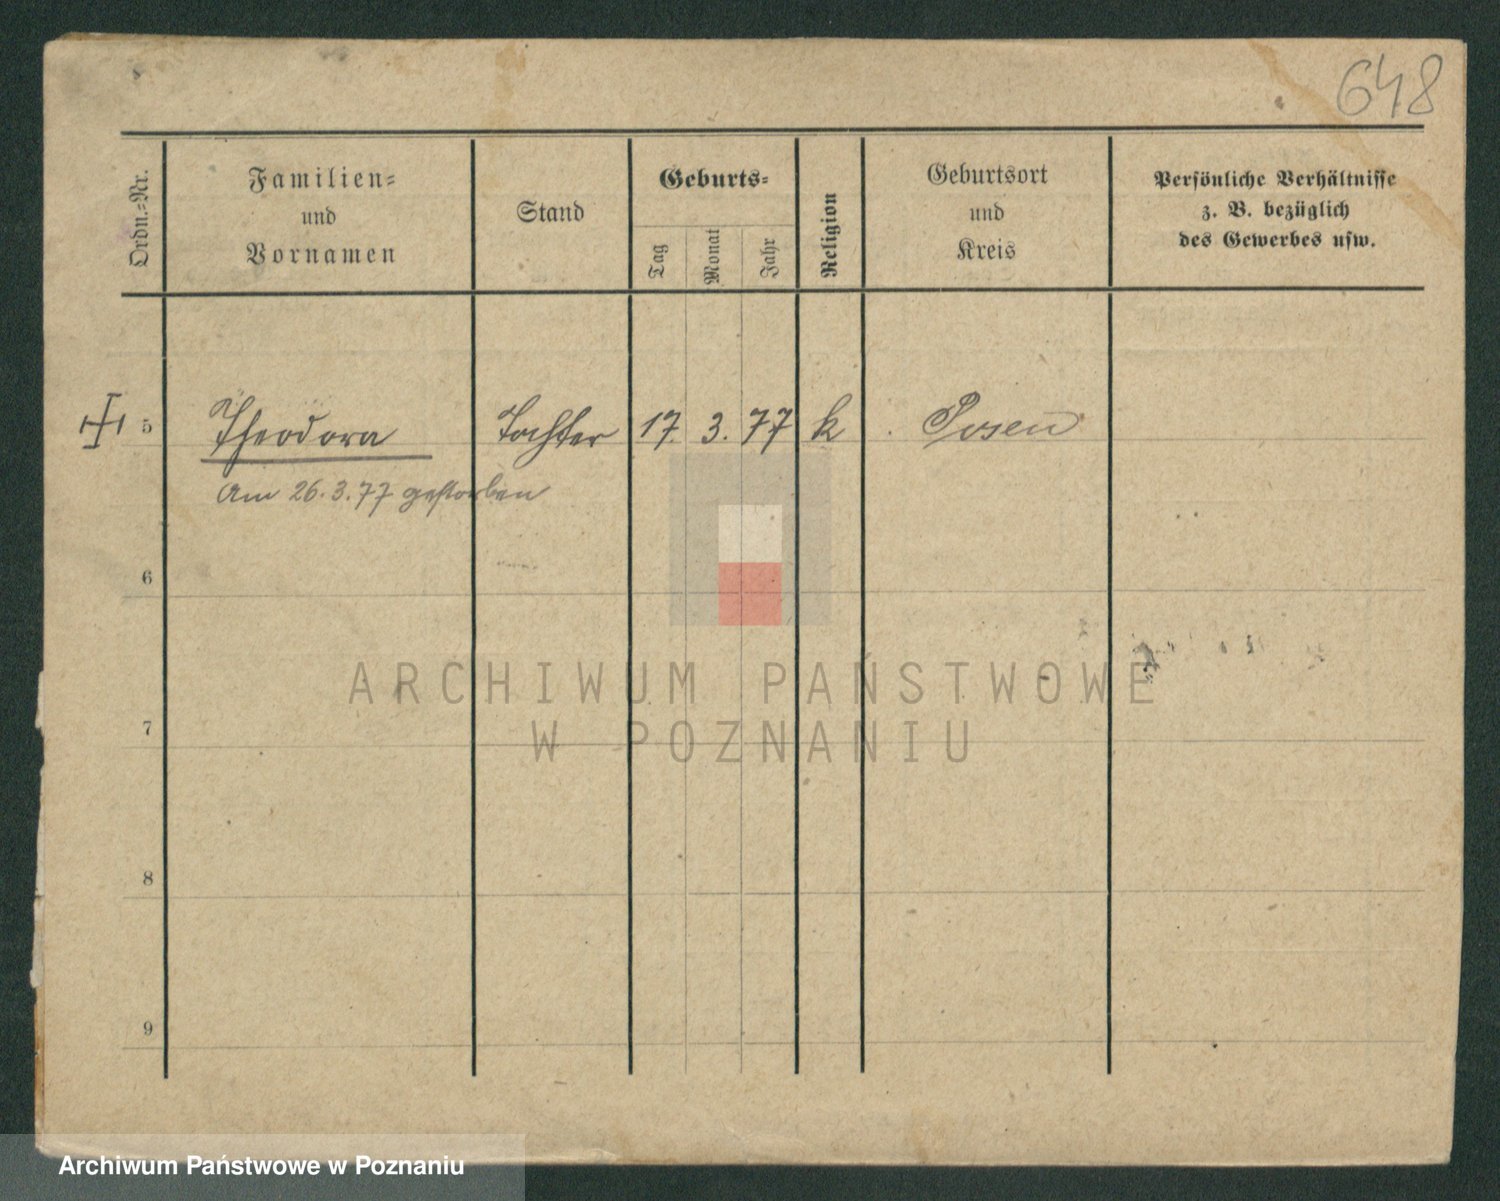 648
Ordn.-Nr.
Familien-
und
Vornamen
Stand
Geburts-
Tag
Monat
Jahr
Religion
Geburtsort
und
Kreis
Persönliche Verhältnisse
z. B. bezüglich
des Gewerbes usw.
5 Theodora Tochter 17. 3. 77 k Posen
Am 26.3.77 gestorben
6
7
8
9
ARCHIWUM PAŃSTWOWE
W POZNANIU
Archiwum Państwowe w Poznaniu